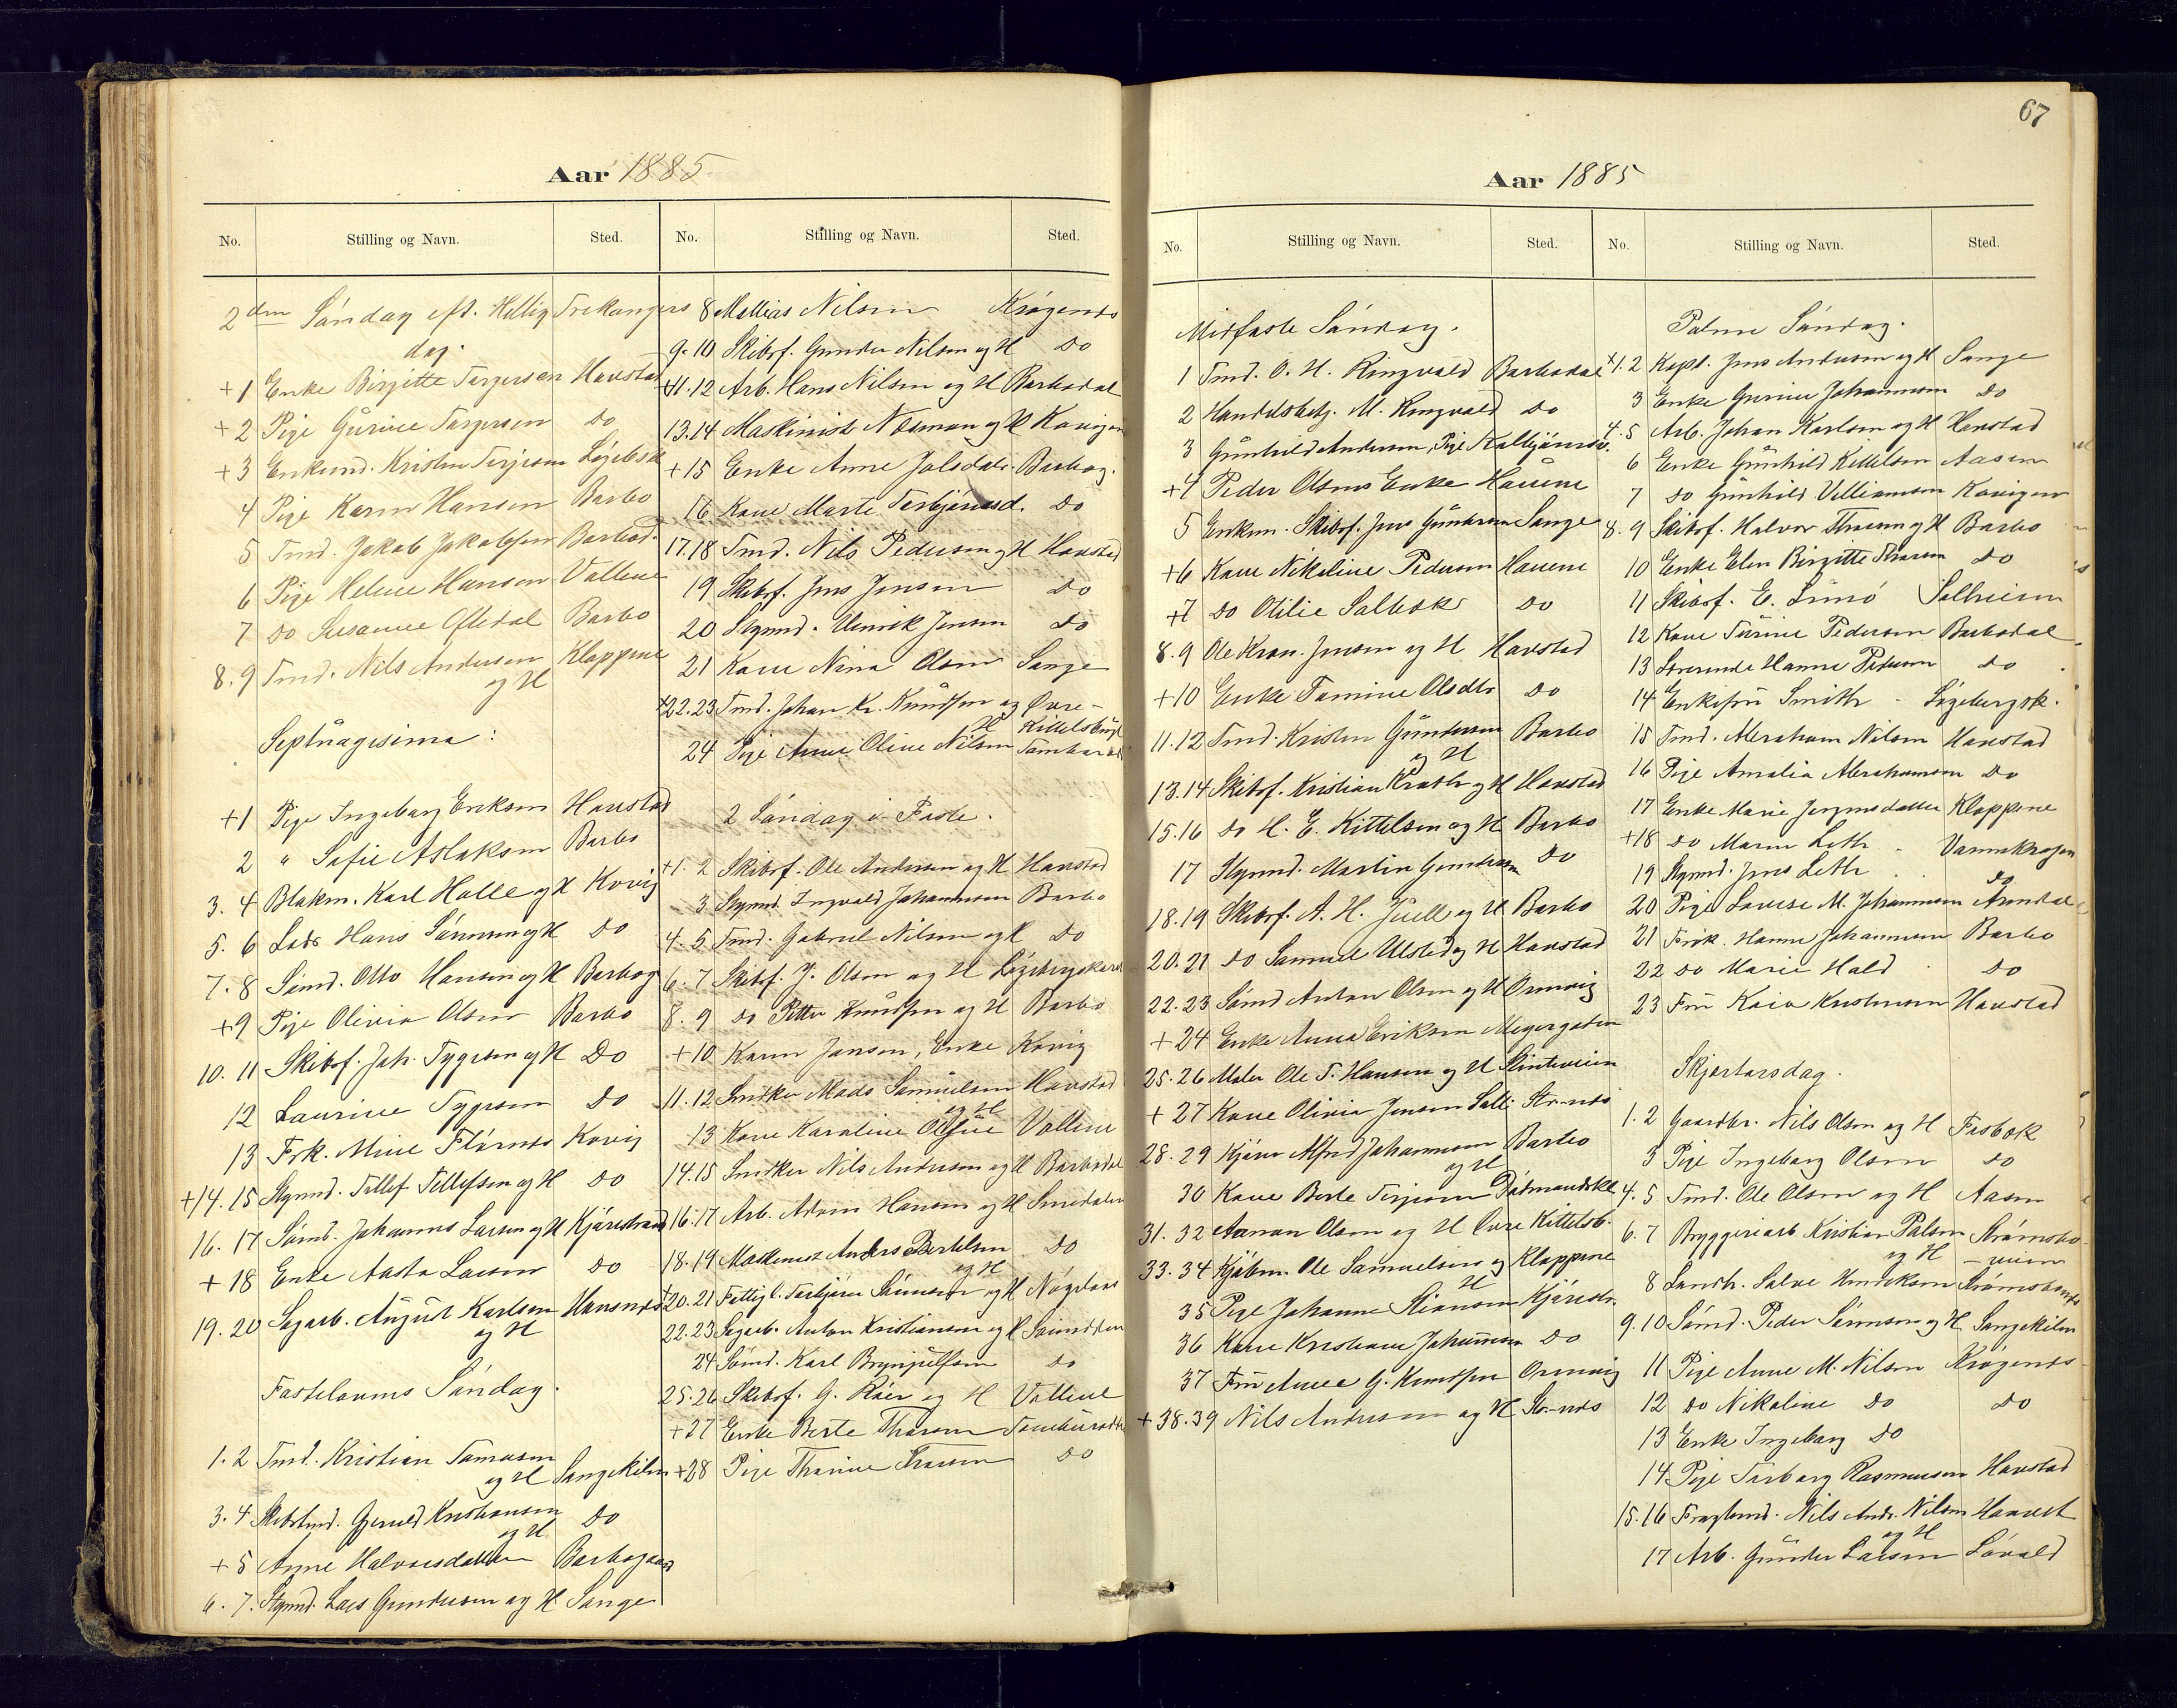 67
Aar 1885
No. Stilling og Navn. Sted.
2den Søndag eft. Hellig Trekongers
dag.
+1 Enke Birgitte Torgersen Havstad
+2 Pige Gurine Torgersen do
+3 Enkemd. Kristen Terjesen
4 Pige Karen Hansen Barbo
5 Tmd. Jakob Jakobsen Barbod.
6 Pige Helene Hansen Vollene
7 do Susanne Oftedal Barbo
8. 9 Tmd. Nils Andersen Kloppene
og H
Septuagesima:
+1 Pige Ingeborg Eriksen Havstad
2 " Sofie Aslaksen Barbo
3. 4 Blakm. Karl Holle og H Kovig
5. 6 Lods Hans Sørensen og H do
7. 8 Sømd. Otto Hansen og H Barbog
+9 Pige Olivia Olsen Barbo
10. 11 Skibsf. Joh. Tygesen og H Do
12 Laurine Tygesen do
13 Frk. Mine Flørnes Kovig
+14. 15 Stymd. Tellef Tellefsen og H do
16. 17 Sømd. Johannes Larsen og H Kjørestrand
+18 Enke Aasta Larsen do
19. 20 Sagarb. August Karlsen Havsnes
og H
Fastelavns Søndag.
1. 2 Tmd. Kristian Tomassen
og H Songekilen
3. 4 Skibstmd. Gjeruld Kristiansen
og H do
+5 Anne Halvorsdatter Barbogaard
6. 7. Stymd. Lars Gundersen og H Songe
No. Stilling og Navn. Sted.
8 Mathias Nilsen Krøgenes
9. 10 Skibsf. Gunder Nilsen og H do
+11. 12 Arb. Hans Nilsen og H Barbodal
13. 14 Maskinist Næsman og H Kovigen
+15 Enke Anne Jolsdal Barbog.
16 Kone Marte Torbjørnsd. do
17. 18 Tmd. Nils Pedersen og H Havstad
19 Skibsf. Jens Jensen do
20 Stymd. Henrik Jensen do
21 Kone Nina Olsen Songe
+22. 23 Tmd. Johan Kr. Knudsen og Øvre-
H Kittelsbugt
24 Pige Anne Oline Nilsen
2 Søndag i Faste.
+1. 2 Skibsf. Ole Andersen og H Havstad
3 Stymd. Ingvald Johannesen Barbo
4. 5 Tmd. Gabriel Nilsen og H do
6. 7 Skibsf. J. Olsen og H
8. 9 do Petter Knudsen og H Barbo
+10 Karen Jansen, Enke Kovig
11. 12 Snedker Mads Samuelsen Havstad
og H
13 Kone Karoline Olsen Vollene
14. 15 Snedker Nils Andersen og H Barbodal
16. 17 Arb. Adam Hansen og H Smedalen
18. 19 Maskinist Anders Bertelsen do
og H
+20. 21 Fattigl. Torbjørn Sørensen og H
22. 23 Sagarb. Anton Kristiansen og H
24 Sømd. Karl Brynjulfsen do
25. 26 Skibsf. G. Röer og H Vollene
+27 Enke Berte Thorsen
+28 Pige Thorine Thorsen do
Aar 1885
No. Stilling og Navn. Sted.
Midfaste Søndag.
1 Tmd. O. H. Ringvold Barbodal
2 Handelsbetj. M. Ringvold do
3 Gunhild Andersen, Pige Kolbjørnsv.
+4 Peder Olsens Enke Hauene
5 Enkem. Skibsf. Jens Gundersen Songe
+6 Kone Nikoline Pedersen Hauene
+7 do Otilie Solbek do
8. 9 Ole Kron. Jensen og H Havstad
+10 Enke Tomine Olsdtr do
11. 12 Tmd. Kristen Gundersen Barbo
og H
13. 14 Skibsf. Kristian Krath og H Havstad
15. 16 do H. E. Kittelsen og H Barbo
17 Stymd. Martin Gundersen do
18. 19 Skibsf. A. H. Juell og H Barbo
20. 21 do Samuel Ulsted og H Havstad
22. 23 Sømd Anton Olsen og H Ormvig
+24 Enke Anna Eriksen Meyergaden
25. 26 Maler Ole T. Hansen og H
+27 Kone Olivia Jensen
28. 29 Kjører Alfred Johannesen Barbo
og H
30 Kone Berte Terjesen
31. 32 Aanon Olsen og H Øvre Kittelsb.
33. 34 Kjøbm. Ole Samuelsen og Kloppene
H
35 Pige Johanne Kjørestr.
36 Kone Kristiane Johannesen do
37 Fru Anne G. Knudsen Ormvig
+38. 39 Nils Andersen og H
No. Stilling og Navn. Sted.
Palme Søndag.
+1. 2 Kapt. Jens Andersen og H Songe
3 Enke Gurine Johannesen do
4. 5 Arb. Johan Karlsen og H Havstad
6 Enke Gunhild Kittelsen Aasen
7 do Gunhild Villiamsen Kovigen
8. 9 Skibsf. Halvor Thorsen og H Barbo
10 Enke Elen Birgitte Thorsen do
11 Skibsf. E. Solheim
12 Kone Turine Pedersen Barbodal
13 Hanne Pedersen do
14 Enkefru Smith
15 Tmd. Abraham Nilsen Havstad
16 Pige Amalia Abrahamsen do
17 Enke Marie Jørgensdatter Kloppene
+18 do Maren Leth
19 Stymd. Jens Leth do
20 Pige Lovise M. Johannesen Arendal
21 Frøk. Hanna Johannesen Barbo
22 do Marie Hald do
23 Fru Kaia Kristensen Havstad
Skjærtorsdag.
1. 2 Gaardbr. Nils Olsen og H Fosbæk
3 Pige Ingeborg Olsen do
4. 5 Tmd. Ole Olsen og H Aasen
6. 7 Bryggeriarb Kristian Palsen Strømsbo-
og H -veien
8 Landh. Salve Henriksen Strømsbo
9. 10 Sømd. Peder Sørensen og H Songekilen
11 Pige Anne M. Nilsen Krøgenes
12 do Nikoline do do
13 Enke Ingeborg do
14 Pige Torborg Rasmussen Havstad
15. 16 Nils Andr. Nilsen
og H
17 Arb. Gunder Larsen Løvold